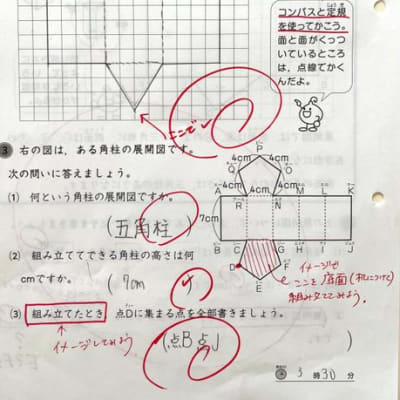 コンパスと定規
を使ってかこう。
面と面がくっつ
いているところ
は，点線でかく
んだよ。
ここでも
3 右の図は，ある角柱の展開図です。
次の問いに答えましょう。
(1) 何という角柱の展開図ですか。
(五角柱)
(2) 組み立ててできる角柱の高さは何
cmですか。
(7cm)
(3) 組み立てたとき 点Dに集まる点を全部書きましょう。
イメージしてみよう
(点B点J)
P
4cm 4cm
Q O
4cm 4cm
A 4cm M L K
R N
7cm
B C G H I J
D F
E
イメージで
ここを底面(机につけて)
組み立ててみよう。
3時30分